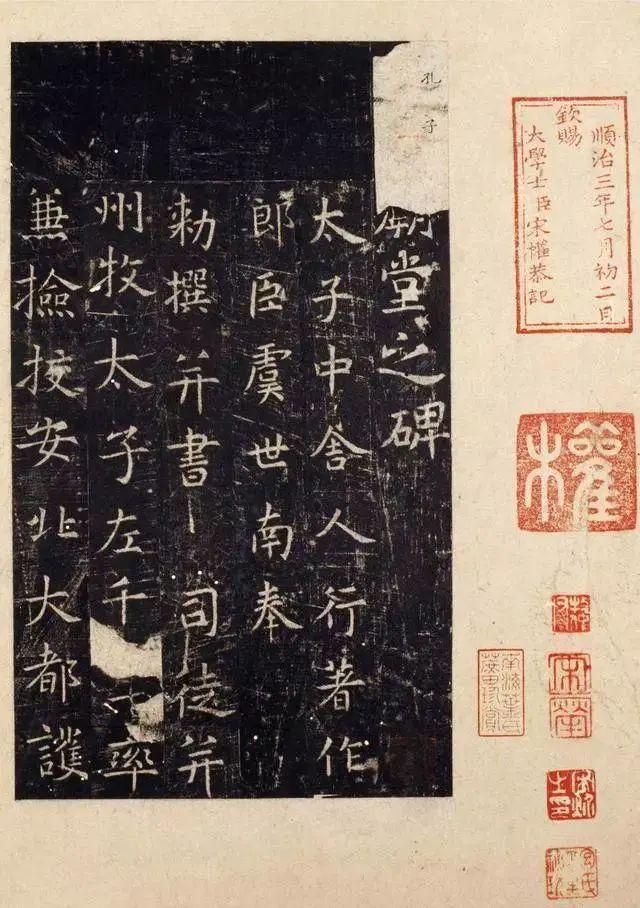 順治三年七月初二日
欽賜
大學士臣宋權恭記
權
宋犖
孔子
廟堂之碑
太子中舍人行著作
郎臣虞世南奉
勅撰并書 司徒并
州牧太子左千 率
兼撿挍安北大都護